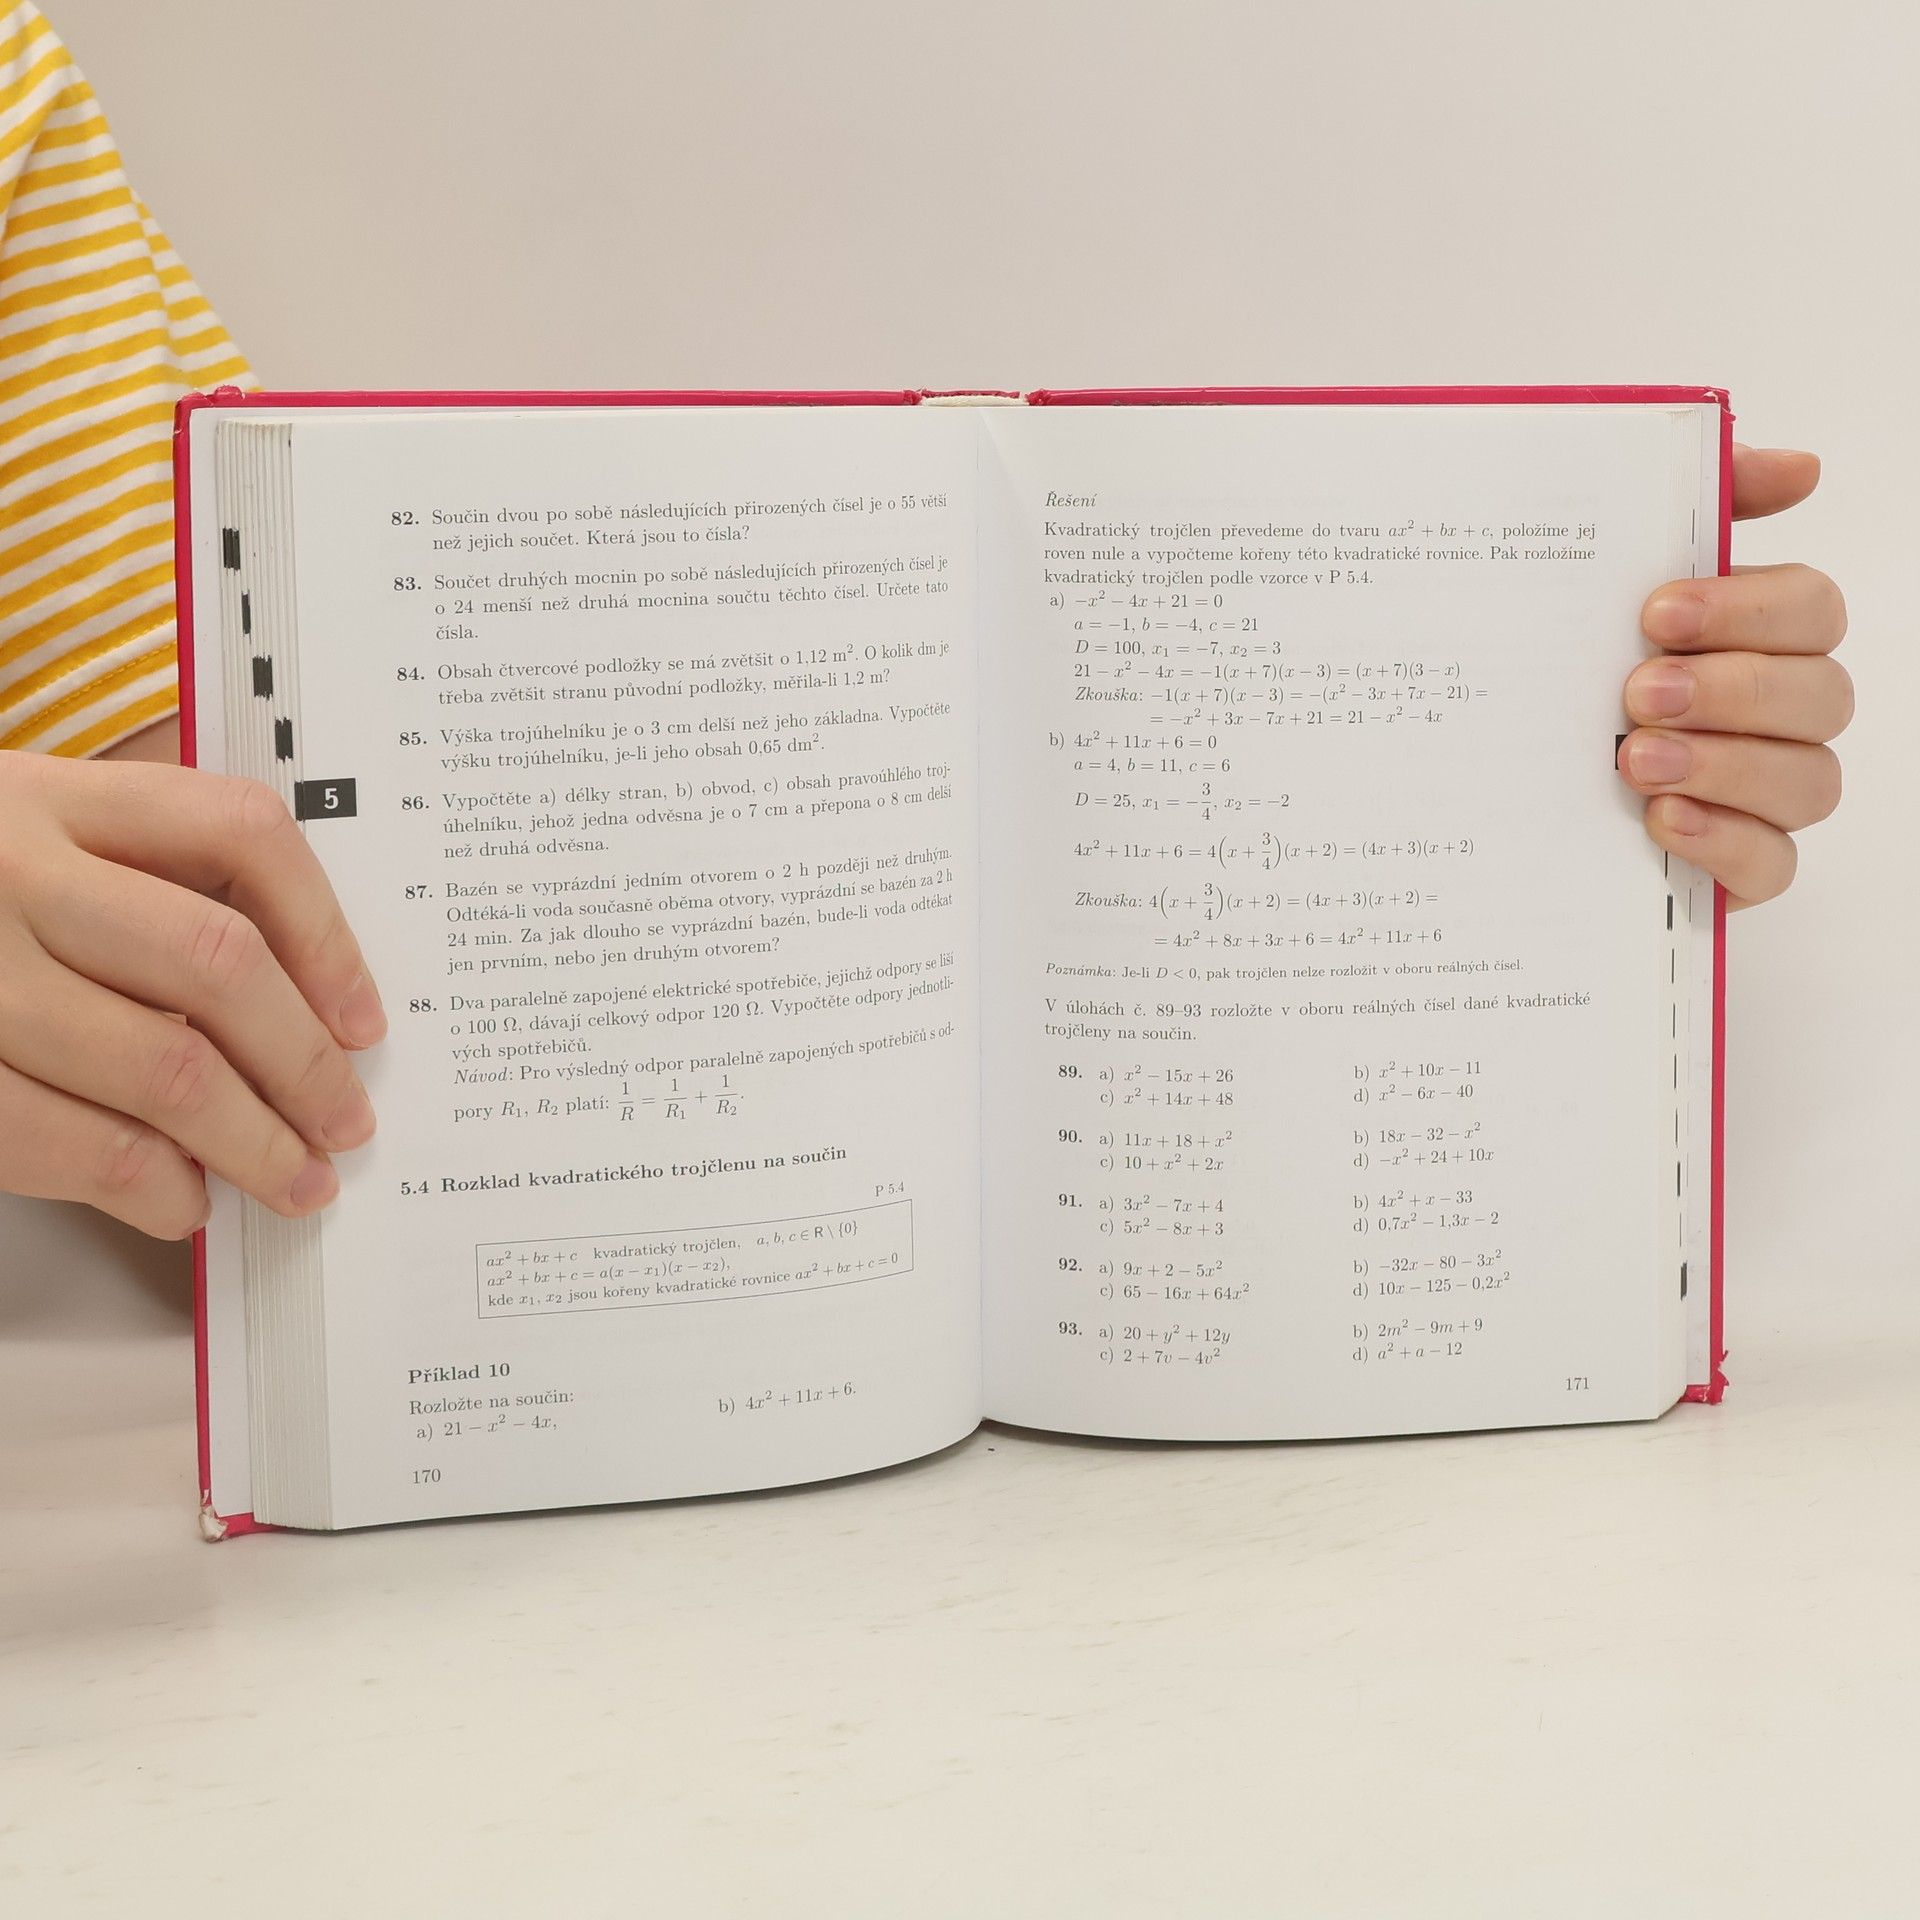 82. Součin dvou po sobě následujících přirozených čísel je o 55 větší
než jejich součet. Která jsou to čísla?
83. Součet druhých mocnin po sobě následujících přirozených čísel je
o 24 menší než druhá mocnina součtu těchto čísel. Určete tato
čísla.
84. Obsah čtvercové podložky se má zvětšit o 1,12 m². O kolik dm je
třeba zvětšit stranu původní podložky, měřila-li 1,2 m?
85. Výška trojúhelníku je o 3 cm delší než jeho základna. Vypočtěte
výšku trojúhelníku, je-li jeho obsah 0,65 dm².
5
86. Vypočtěte a) délky stran, b) obvod, c) obsah pravoúhlého troj-
úhelníku, jehož jedna odvěsna je o 7 cm a přepona o 8 cm delší
než druhá odvěsna.
87. Bazén se vyprázdní jedním otvorem o 2 h později než druhým.
Odtéká-li voda současně oběma otvory, vyprázdní se bazén za 2 h
24 min. Za jak dlouho se vyprázdní bazén, bude-li voda odtékat
jen prvním, nebo jen druhým otvorem?
88. Dva paralelně zapojené elektrické spotřebiče, jejichž odpory se liší
o 100 Ω, dávají celkový odpor 120 Ω. Vypočtěte odpory jednotli-
vých spotřebičů.
Návod: Pro výsledný odpor paralelně zapojených spotřebičů s od-
pory R₁, R₂ platí: 1/R = 1/R₁ + 1/R₂.
5.4 Rozklad kvadratického trojčlenu na součin
P 5.4
ax² + bx + c kvadratický trojčlen, a, b, c ∈ R \ {0}
ax² + bx + c = a(x − x₁)(x − x₂),
kde x₁, x₂ jsou kořeny kvadratické rovnice ax² + bx + c = 0
Příklad 10
Rozložte na součin:
a) 21 − x² − 4x, b) 4x² + 11x + 6.
170
Řešení
Kvadratický trojčlen převedeme do tvaru ax² + bx + c, položíme jej
roven nule a vypočteme kořeny této kvadratické rovnice. Pak rozložíme
kvadratický trojčlen podle vzorce v P 5.4.
a) −x² − 4x + 21 = 0
a = −1, b = −4, c = 21
D = 100, x₁ = −7, x₂ = 3
21 − x² − 4x = −1(x + 7)(x − 3) = (x + 7)(3 − x)
Zkouška: −1(x + 7)(x − 3) = −(x² − 3x + 7x − 21) =
= −x² + 3x − 7x + 21 = 21 − x² − 4x
b) 4x² + 11x + 6 = 0
a = 4, b = 11, c = 6
D = 25, x₁ = −3/4, x₂ = −2
4x² + 11x + 6 = 4(x + 3/4)(x + 2) = (4x + 3)(x + 2)
Zkouška: 4(x + 3/4)(x + 2) = (4x + 3)(x + 2) =
= 4x² + 8x + 3x + 6 = 4x² + 11x + 6
Poznámka: Je-li D < 0, pak trojčlen nelze rozložit v oboru reálných čísel.
V úlohách č. 89–93 rozložte v oboru reálných čísel dané kvadratické
trojčleny na součin.
89. a) x² − 15x + 26 b) x² + 10x − 11
c) x² + 14x + 48 d) x² − 6x − 40
90. a) 11x + 18 + x² b) 18x − 32 − x²
c) 10 + x² + 2x d) −x² + 24 + 10x
91. a) 3x² − 7x + 4 b) 4x² + x − 33
c) 5x² − 8x + 3 d) 0,7x² − 1,3x − 2
92. a) 9x + 2 − 5x² b) −32x − 80 − 3x²
c) 65 − 16x + 64x² d) 10x − 125 − 0,2x²
93. a) 20 + y² + 12y b) 2m² − 9m + 9
c) 2 + 7v − 4v² d) a² + a − 12
171